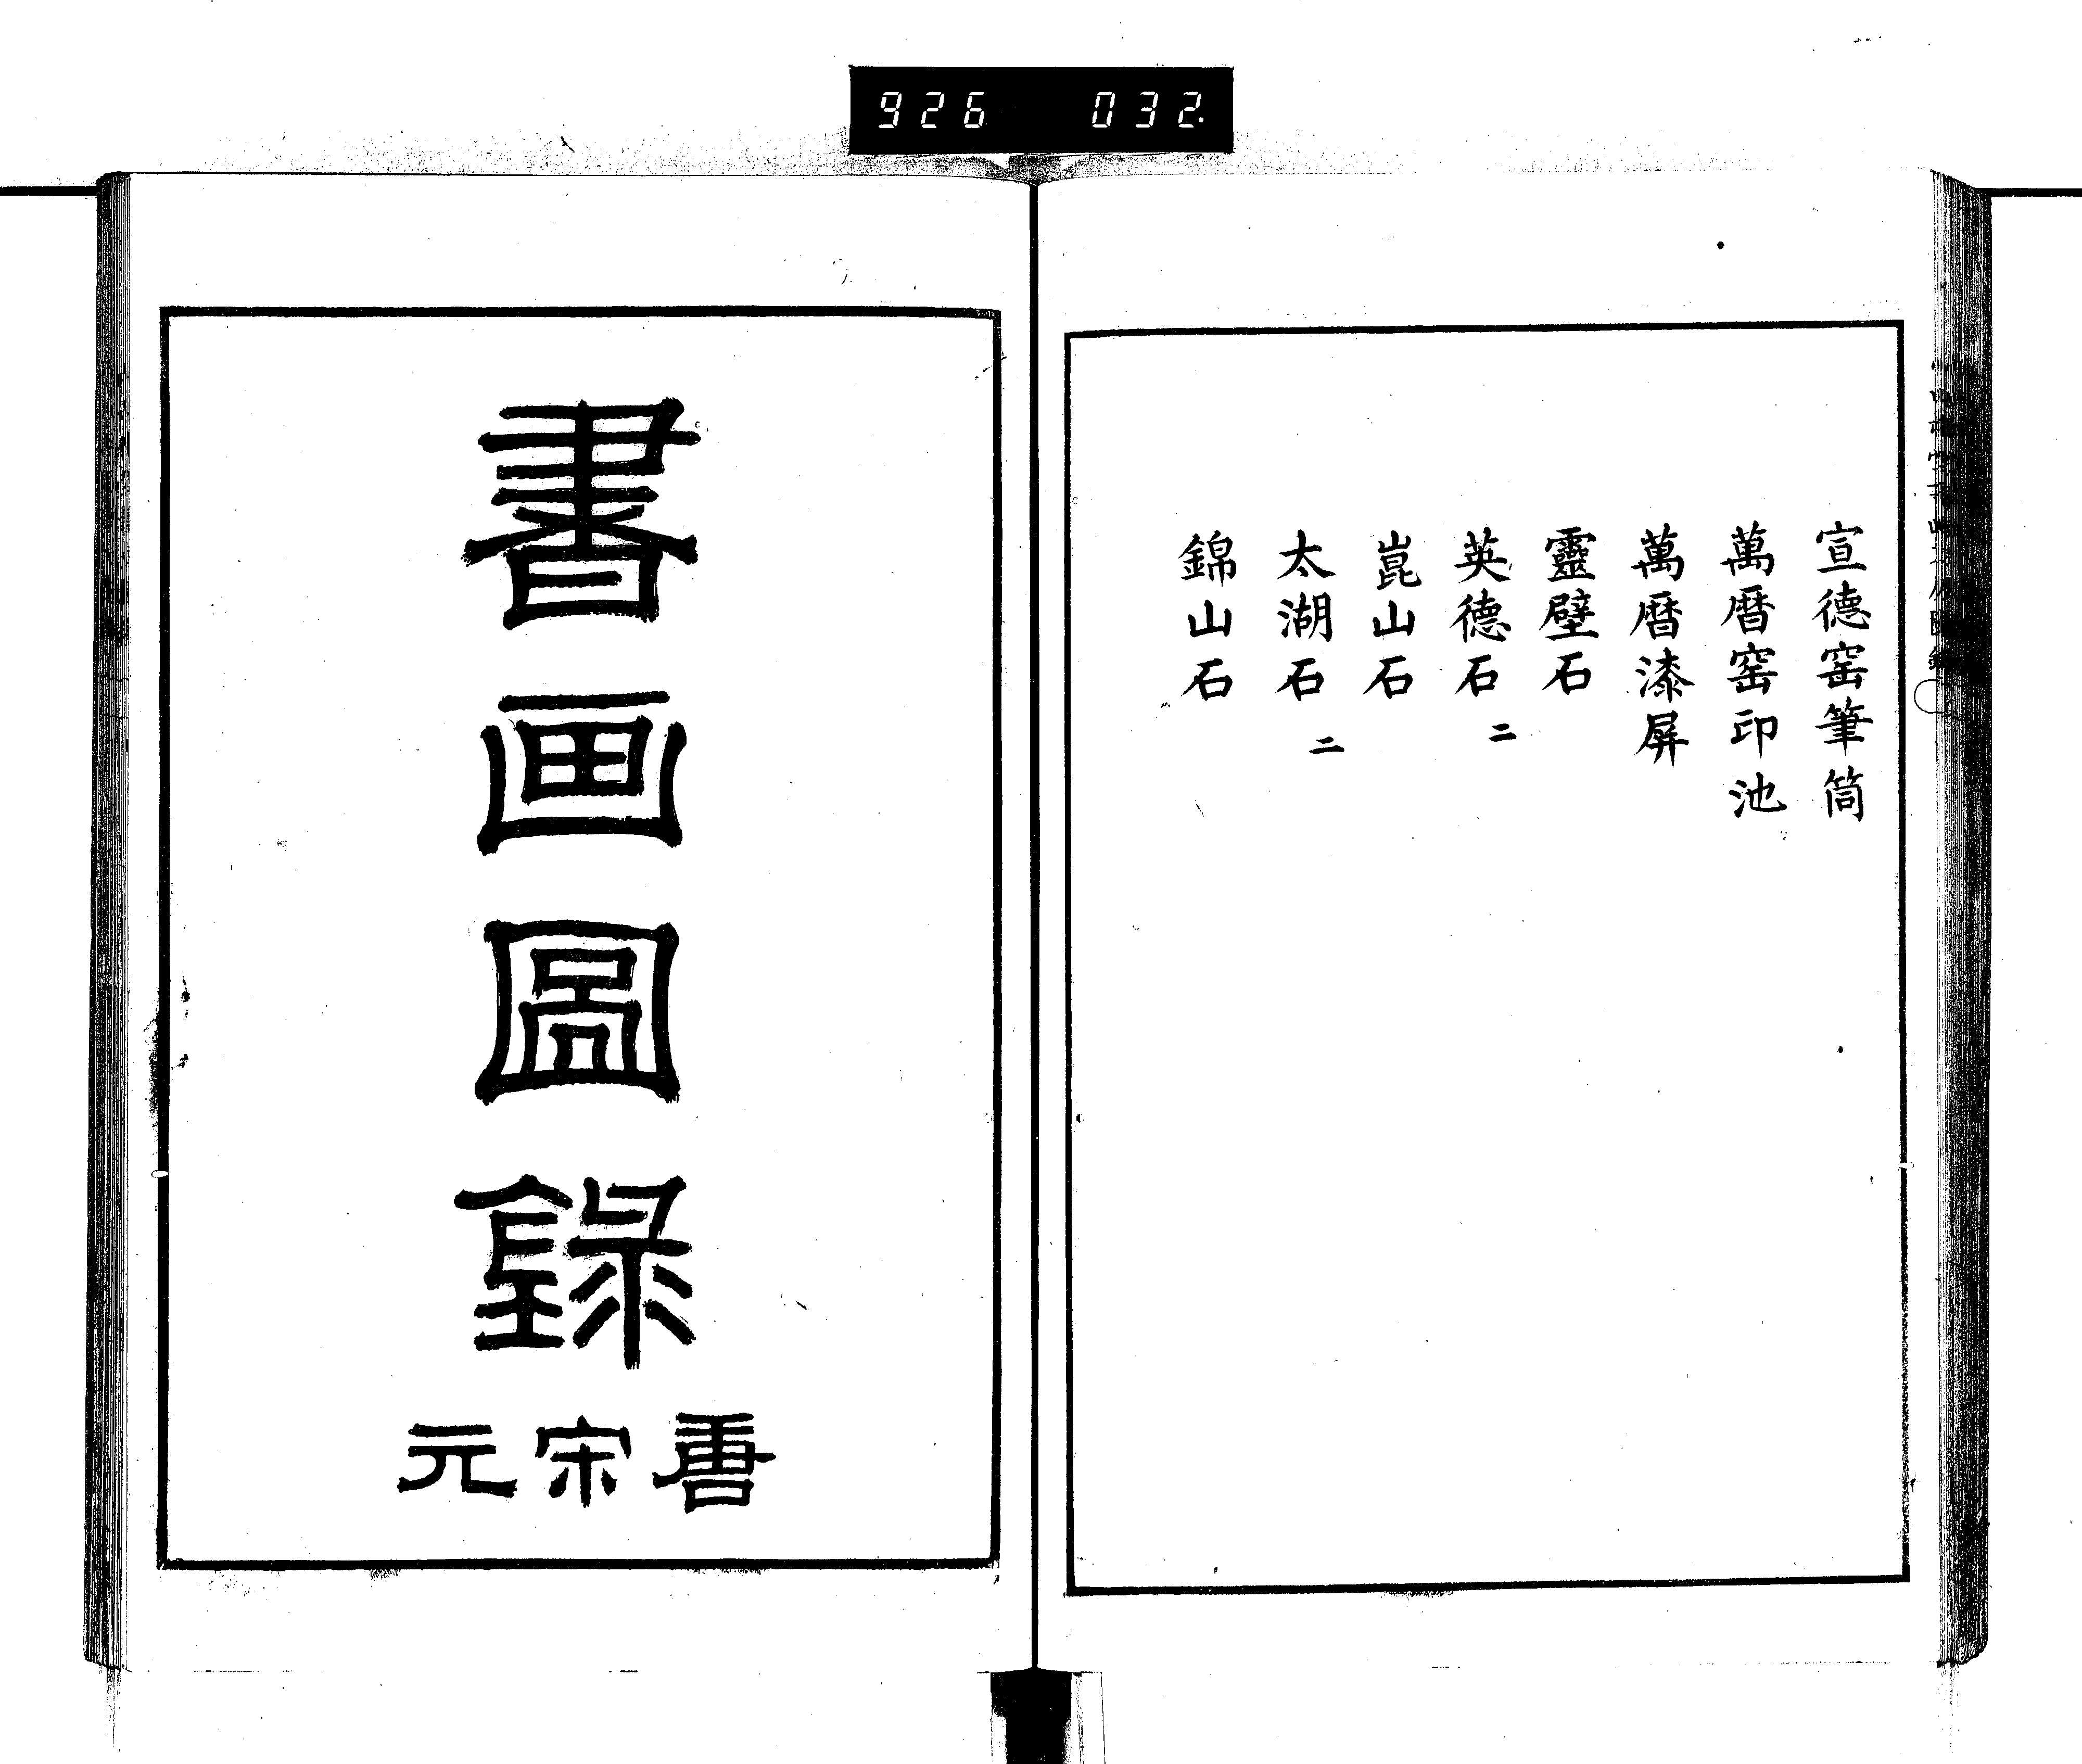 926 032.
宣德窑筆筒
萬曆窑印池
萬曆漆屏
靈壁石
英德石 二
崑山石
太湖石 二
錦山石
書画圖錄
唐宋元